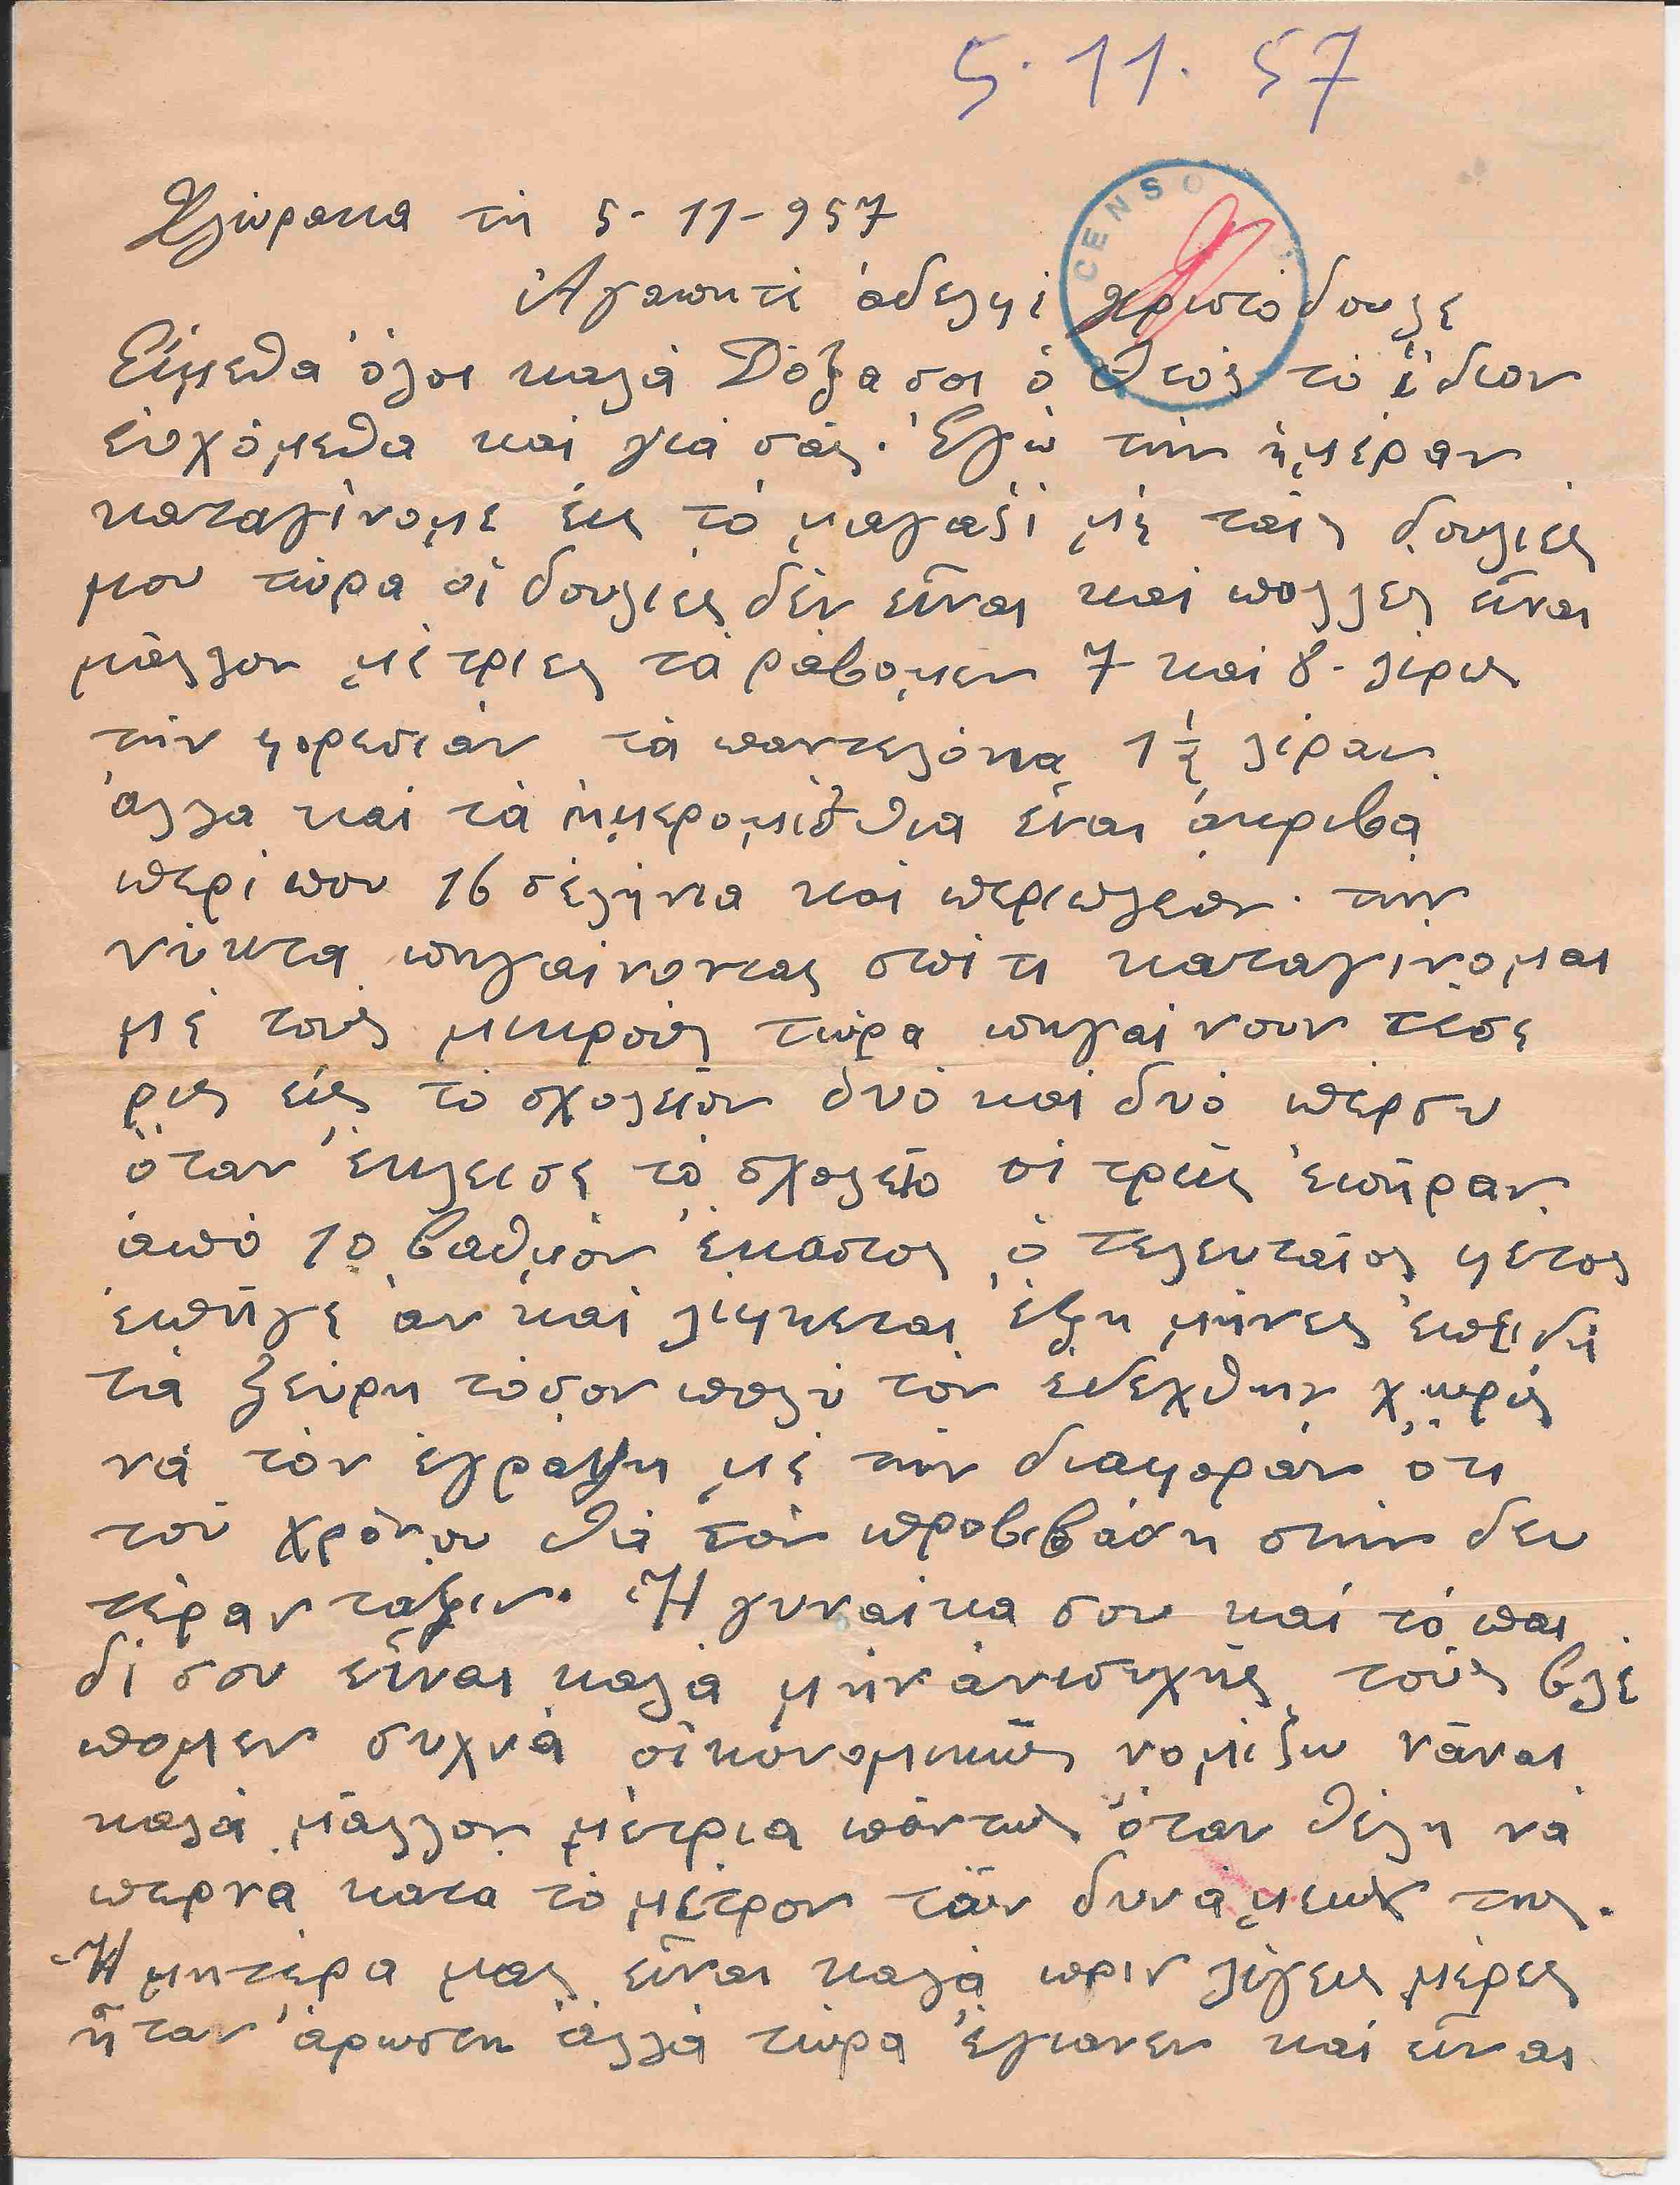 5. 11. 57
CENSO
Χλώρακα τη 5-11-957
Ἀγαπητέ ἀδελφέ Χριστόδουλε
Εἴμεθα ὅλοι καλά Δόξα σοι ὁ Θεός τό ἴδιον
εὐχόμεθα καί γιά σάς. Ἐγώ τήν ἡμέραν
καταγίνομε εἰς τό μαγαζί μέ ταίς δουλιές
μου τώρα οἱ δουλιές δέν εἶναι καί πολλές εἶναι
μάλλον μέτριες τά ράβομεν 7 καί 8- λίρες
τήν φορεσιάν τά παντελόνια 1½ λίραν
ἀλλά καί τά ἡμερομίσθια εἶναι ἀκριβά
περίπου 16 σελήνια καί περιπλέον. την
νύκτα πηγαίνοντας σπίτι καταγίνομαι
μέ τούς μικρούς τώρα πηγαίνουν τέσε
ρις είς τό σχολείον δυό καί δυό πέρσυ
ὅταν ἔκλεισε τό σχολείο οἱ τρείς ἐπήραν
ἀπό 10 βαθμόν ἕκαστος ὁ τελευταίος φέτος
ἐπήγε ἀν καί λίφκεται ἕξη μήνες ἐπειδή
τά ξεύρη τόσον πολύ τόν ἐδέχθην χωρίς
νά τόν ἐγράψη μέ τήν διαφοράν ὅτι
τού χρόνου θά τόν προβιβάση στήν δευ
τέραν τάξιν. Ἡ γυναίκα σου καί τό παι
δί σου εἶναι καλά μήν ἀνισυχής τούς βλέ
πομεν συχνά οἰκονομικώς νομίζω νάναι
καλά μάλλον μέτρια πάντως ὅταν θέλη νά
περνά κατα τό μέτρον τών δυνάμεων της.
Ἡ μητέρα μας εἶναι καλά πριν λίγες μέρες
ἦταν ἄρωστη ἀλλά τώρα ἔγιανεν καί εἶναι